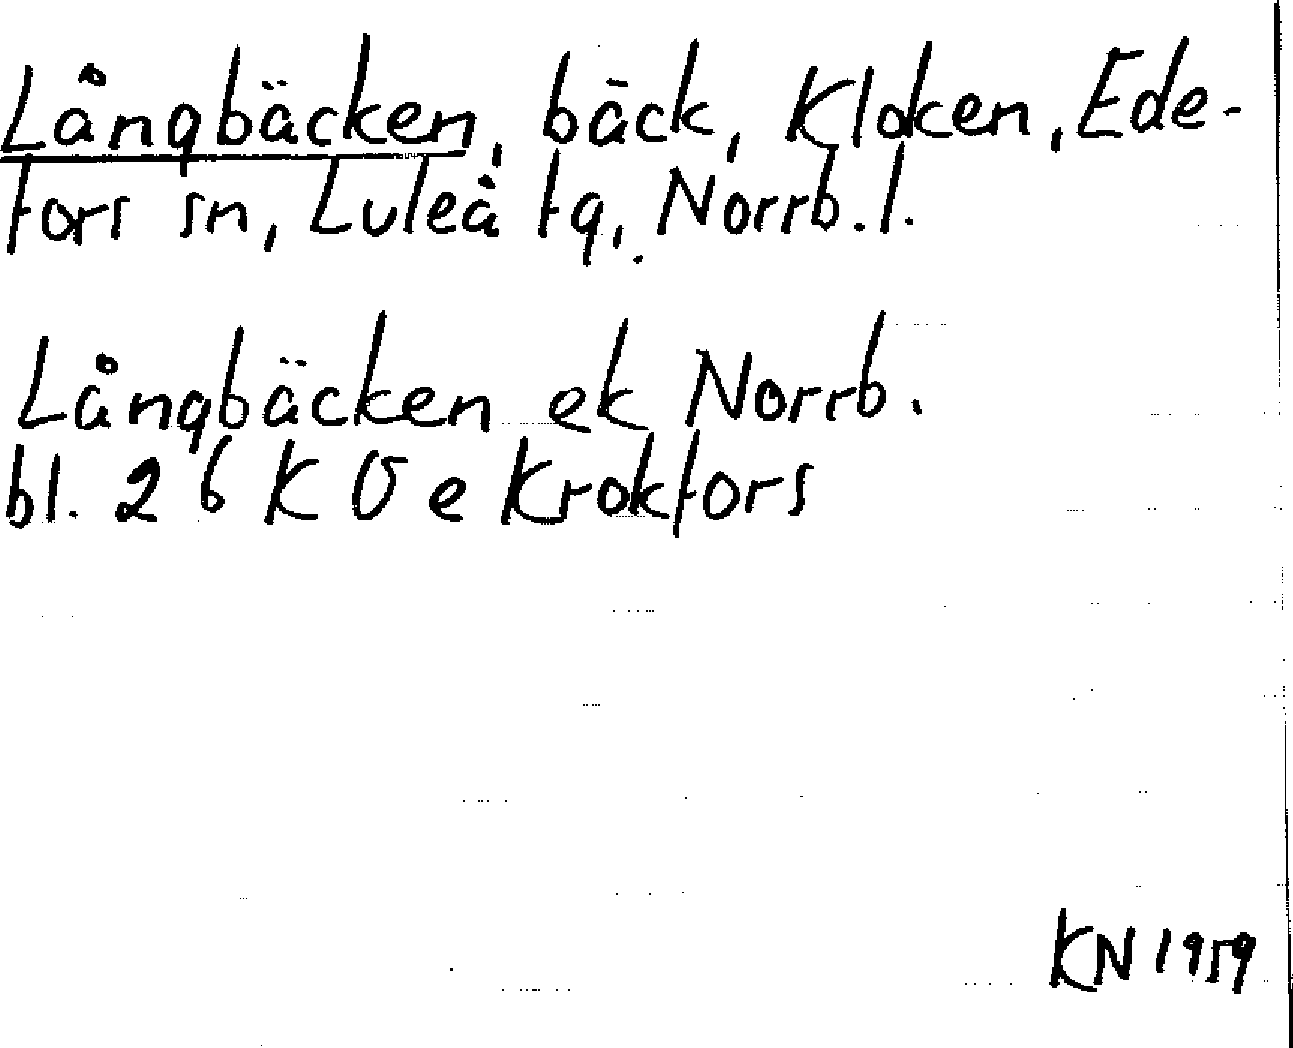 Långbäcken, bäck, Kloken, Ede-
fors sn, Luleå tg, Norrb.l.
Långbäcken ek Norrb.
bl. 26 K Ö e Krokfors
KN 1959